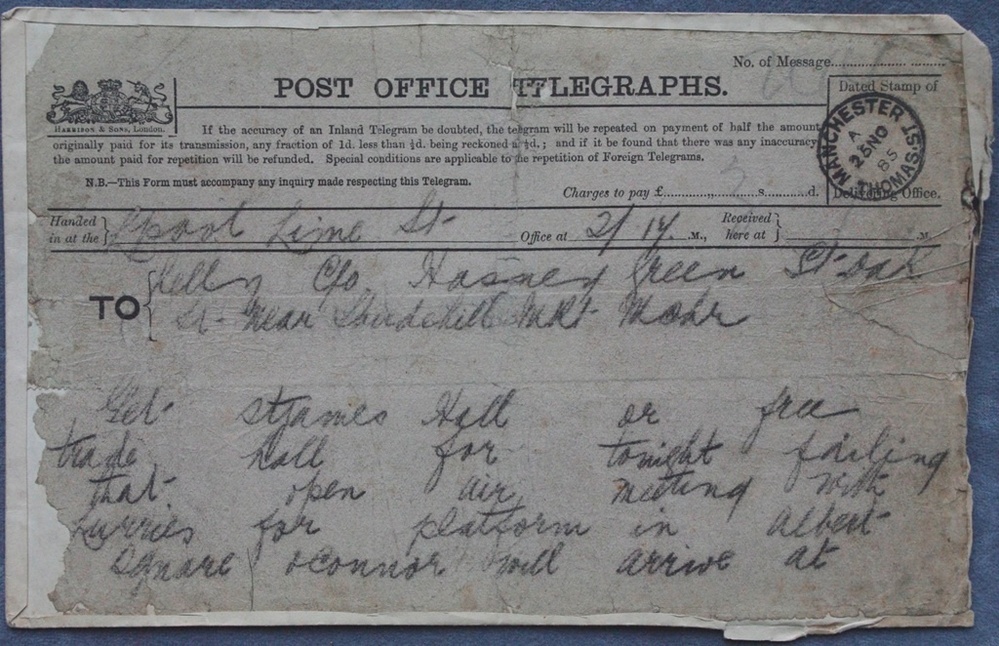 No. of Message
POST OFFICE TELEGRAPHS.
Dated Stamp of
HARRISON & SONS, London.
If the accuracy of an Inland Telegram be doubted, the telegram will be repeated on payment of half the amount
originally paid for its transmission, any fraction of 1d. less than ½d. being reckoned a ½d.; and if it be found that there was any inaccuracy
the amount paid for repetition will be refunded. Special conditions are applicable to the repetition of Foreign Telegrams.
MANCHESTER ST THOMAS ST
A
25 NO
85
N.B.—This Form must accompany any inquiry made respecting this Telegram.
Charges to pay £ s. d.
Delivering Office.
Handed in at the } Lpool Lime St Office at 2/14 .M., Received here at } .M.
TO { Kelly C/o Green St Oak
St Near Shudehill Mkt
Get St James Hall or free
trade hall for tonight failing
that open air meeting with
Lurries for platform in Albert
Square oConnor will arrive at